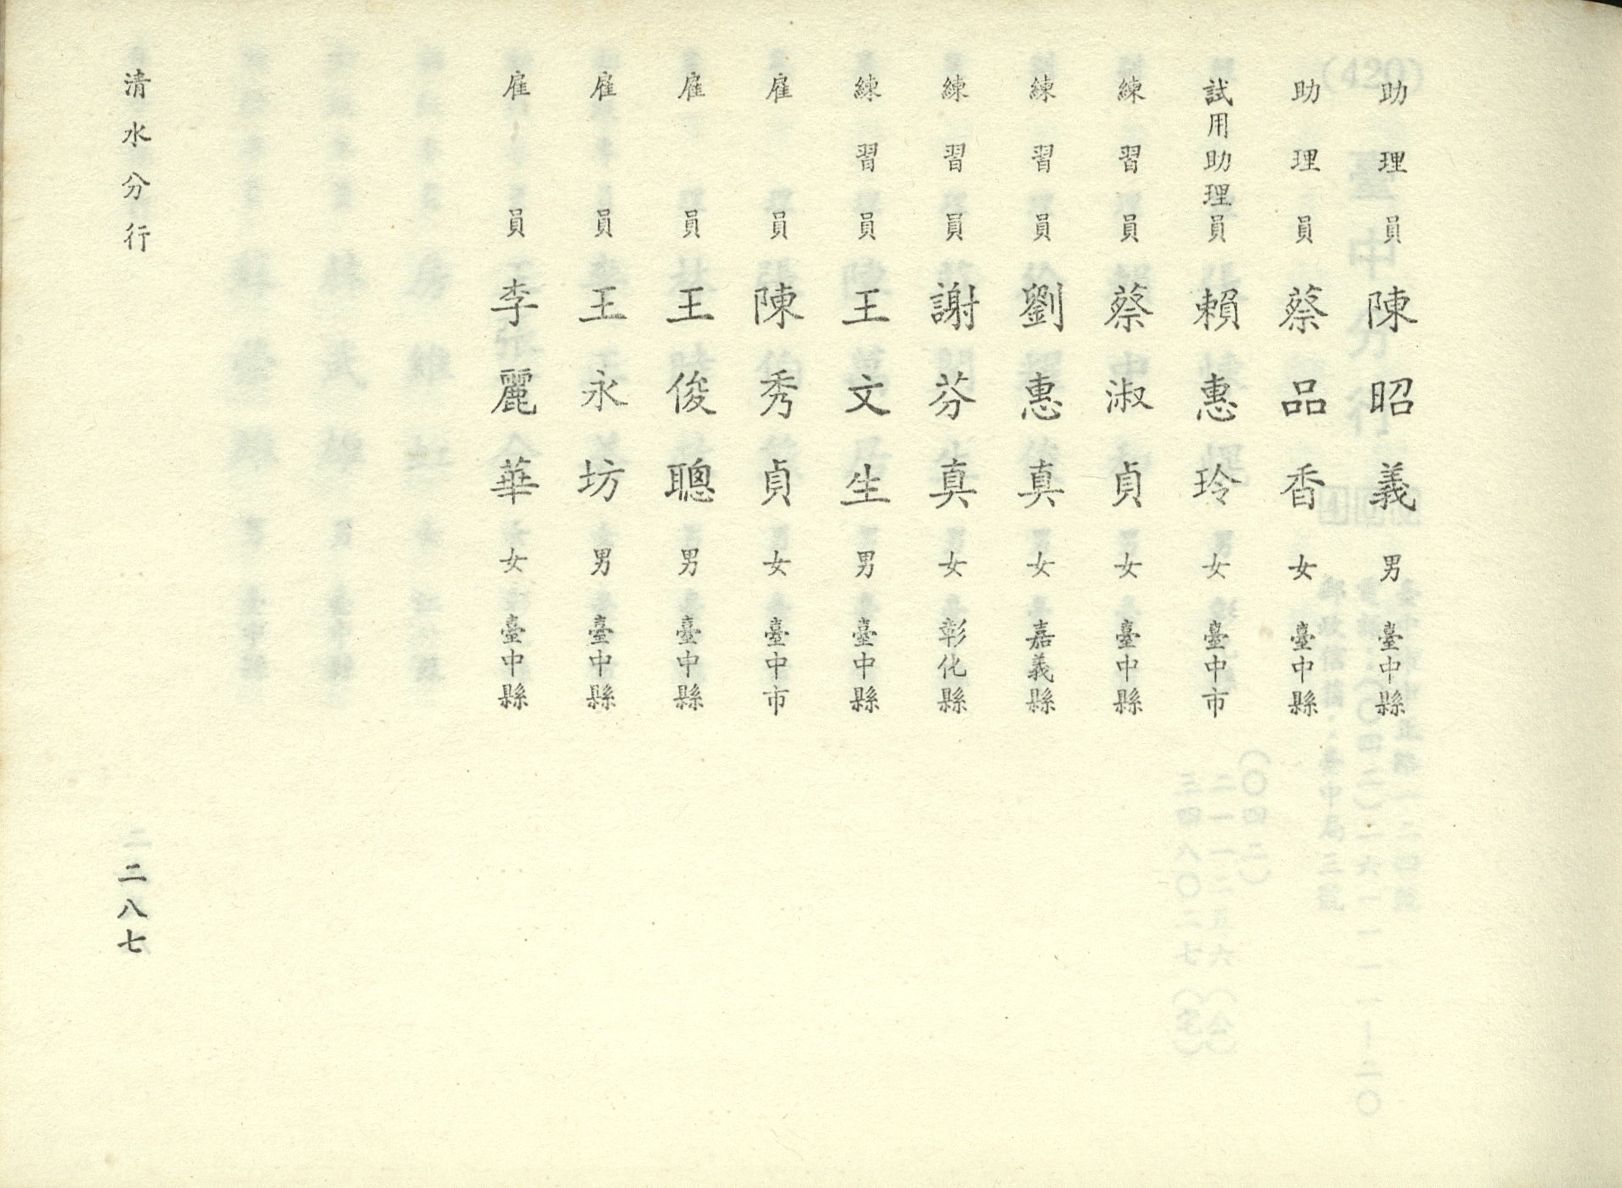 助理員 陳昭義 男 臺中縣
助理員 蔡品香 女 臺中縣
試用助理員 賴惠玲 女 臺中市
練習員 蔡淑貞 女 臺中縣
練習員 劉惠真 女 嘉義縣
練習員 謝芬真 女 彰化縣
練習員 王文生 男 臺中縣
雇員 陳秀貞 女 臺中市
雇員 王俊聰 男 臺中縣
雇員 王永坊 男 臺中縣
雇員 李麗華 女 臺中縣
清水分行
二八七